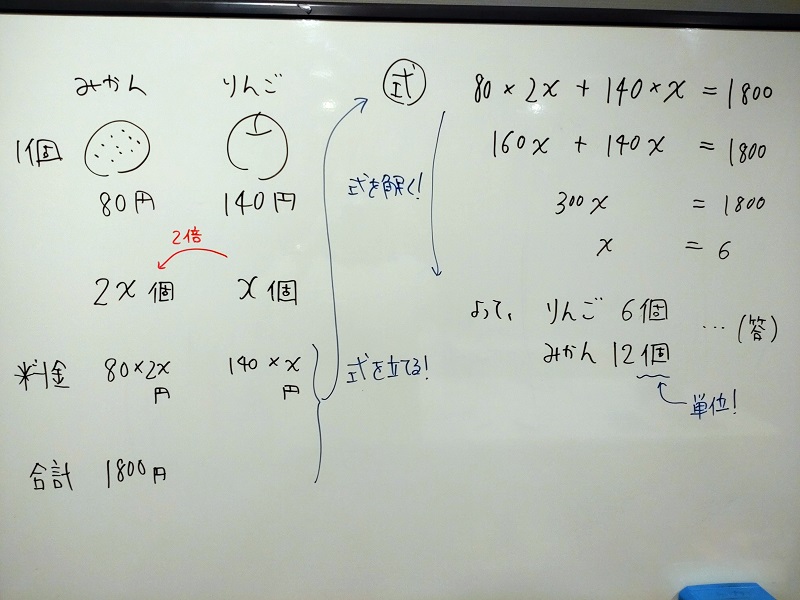 みかん りんご
1個
80円 140円
2倍
2x 個 x 個
料金 80×2x 円 140×x 円
合計 1800円
式を立てる!
式
式を解く!
80×2x + 140×x = 1800
160x + 140x = 1800
300x = 1800
x = 6
よって、 りんご 6個
みかん 12個 … (答)
単位!